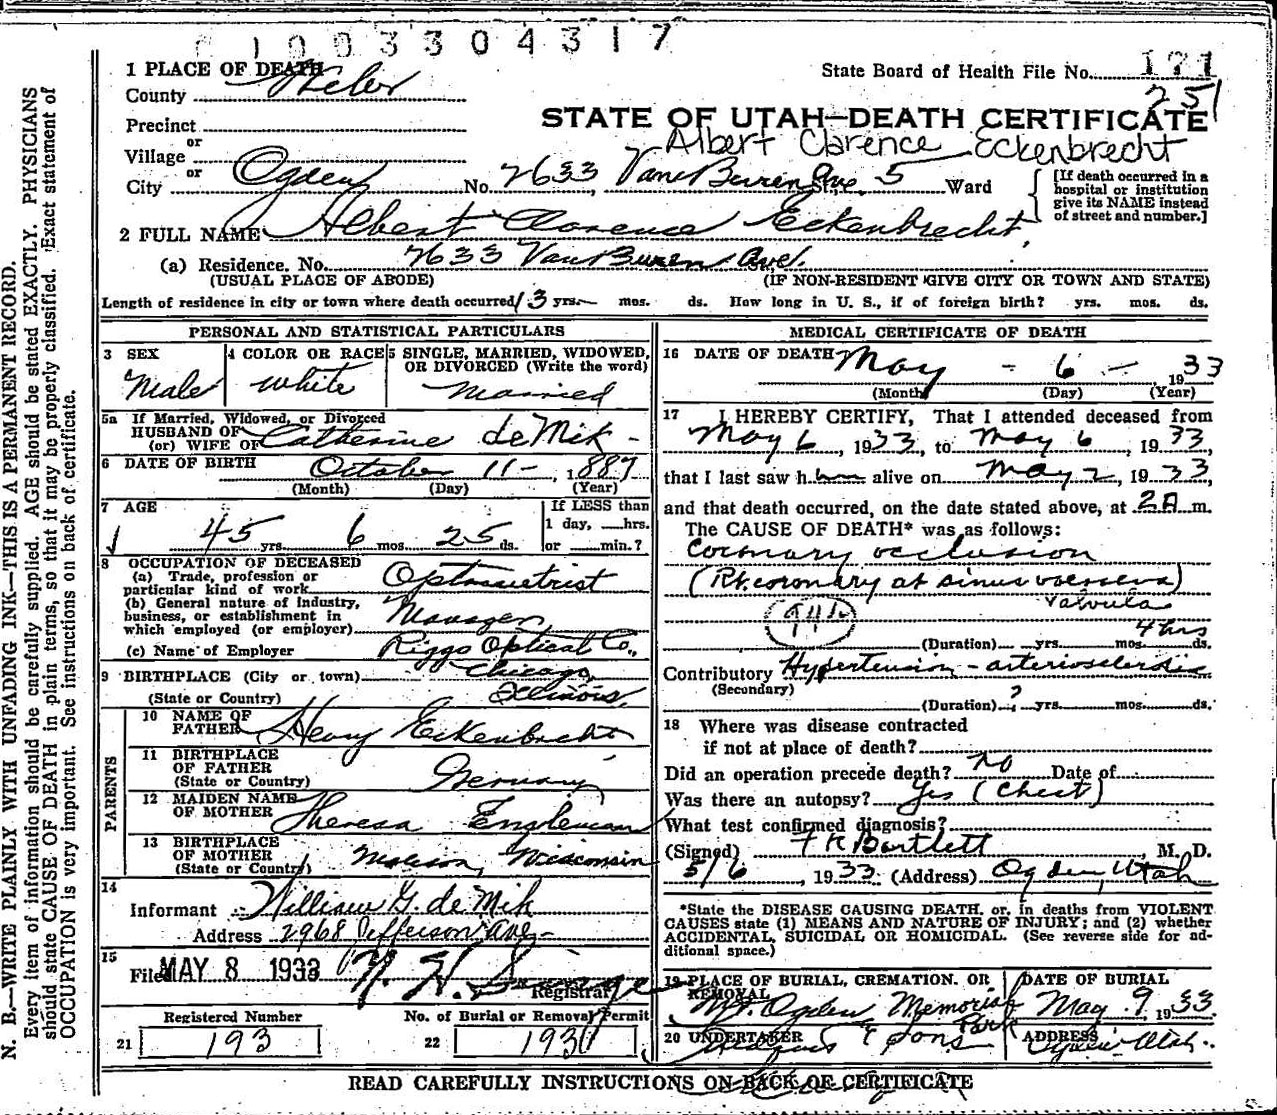 1003304317
1 PLACE OF DEATH
State Board of Health File No. 171
County Weber
251
STATE OF UTAH—DEATH CERTIFICATE
Precinct
Albert Clarence Eckenbrecht
or
Village
or
City Ogden No. 2633 Van Buren Ave. St. 5 Ward
[If death occurred in a hospital or institution give its NAME instead of street and number.]
2 FULL NAME Albert Clarence Eckenbrecht
(a) Residence. No. 2633 Van Buren Ave.
(USUAL PLACE OF ABODE) (IF NON-RESIDENT GIVE CITY OR TOWN AND STATE)
Length of residence in city or town where death occurred 13 yrs. mos. ds. How long in U. S., if of foreign birth? yrs. mos. ds.
PERSONAL AND STATISTICAL PARTICULARS
3 SEX
Male
4 COLOR OR RACE
White
5 SINGLE, MARRIED, WIDOWED,
OR DIVORCED (Write the word)
Married
5a If Married, Widowed, or Divorced
HUSBAND OF
(or) WIFE OF Catherine de Mik
6 DATE OF BIRTH October 11 - 1887
(Month) (Day) (Year)
7 AGE
45 yrs. 6 mos. 25 ds.
If LESS than
1 day, hrs.
or min.?
8 OCCUPATION OF DECEASED
(a) Trade, profession or
particular kind of work Optometrist
(b) General nature of Industry,
business, or establishment in
which employed (or employer) Manager
(c) Name of Employer Riggs Optical Co.,
9 BIRTHPLACE (City or town) Chicago,
(State or Country) Illinois.
PARENTS
10 NAME OF
FATHER Henry Eckenbrecht
11 BIRTHPLACE
OF FATHER
(State or Country) Germany
12 MAIDEN NAME
OF MOTHER Theresa Engleman
13 BIRTHPLACE
OF MOTHER
(State or Country) Madison, Wisconsin
14
Informant William G. de Mik
Address 2968 Jefferson Ave -
15
Filed MAY 8 1933
Registrar
Registered Number
No. of Burial or Removal Permit
21 193
22 1930
MEDICAL CERTIFICATE OF DEATH
16 DATE OF DEATH May - 6 - 1933
(Month) (Day) (Year)
17 I HEREBY CERTIFY, That I attended deceased from
May 6, 1933, to May 6, 1933,
that I last saw him alive on May 2, 1933,
and that death occurred, on the date stated above, at 2 A m.
The CAUSE OF DEATH* was as follows:
Coronary occlusion
(Rt. coronary at sinus
94b
4 hrs
(Duration) yrs. mos. ds.
Contributory Hypertension - arteriosclerosis
(Secondary)
(Duration) ? yrs. mos. ds.
18 Where was disease contracted
if not at place of death?
Did an operation precede death? no Date of
Was there an autopsy? Yes (Chest)
What test confirmed diagnosis?
(Signed) F K Bartlett M. D.
5/6, 1933 (Address) Ogden, Utah
*State the DISEASE CAUSING DEATH, or, in deaths from VIOLENT
CAUSES state (1) MEANS AND NATURE OF INJURY; and (2) whether
ACCIDENTAL, SUICIDAL OR HOMICIDAL. (See reverse side for ad-
ditional space.)
19 PLACE OF BURIAL, CREMATION, OR
REMOVAL
Mt. Ogden Memorial Park
DATE OF BURIAL
May 9, 1933
20 UNDERTAKER
& Sons
ADDRESS
Ogden Utah.
READ CAREFULLY INSTRUCTIONS ON BACK OF CERTIFICATE
N. B.—WRITE PLAINLY WITH UNFADING INK—THIS IS A PERMANENT RECORD.
Every item of information should be carefully supplied. AGE should be stated EXACTLY. PHYSICIANS
should state CAUSE OF DEATH in plain terms, so that it may be properly classified. Exact statement of
OCCUPATION is very important. See instructions on back of certificate.